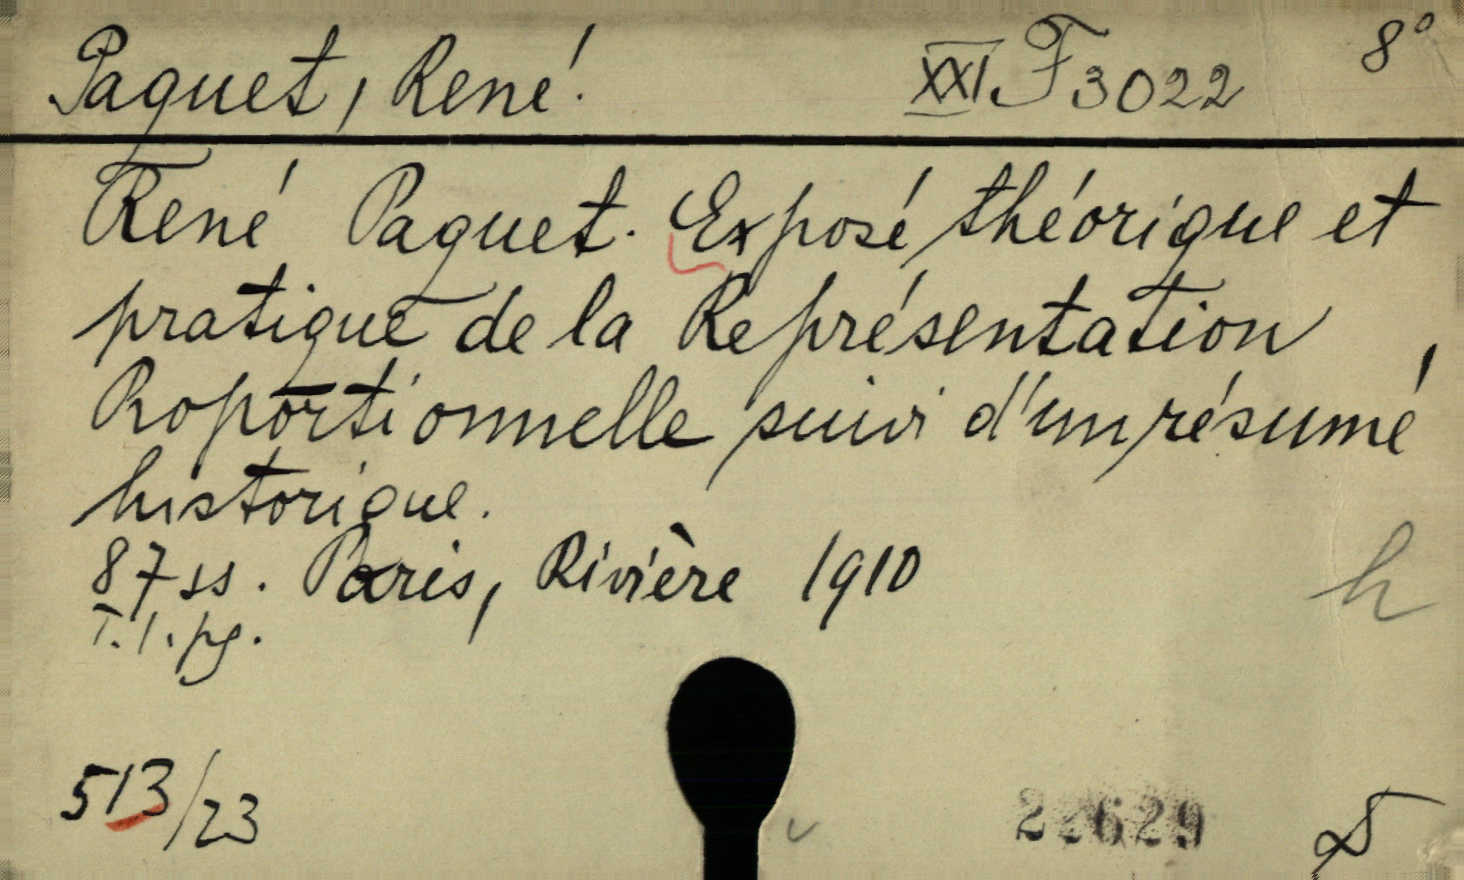 Paquet, René. XXI F 3022 8°
René Paquet. Exposé théorique et
pratique de la Représentation
Proportionnelle suivi d'un résumé
historique.
87 ss. Paris, Rivière 1910
T. 1. pg.
h
513/23
22629